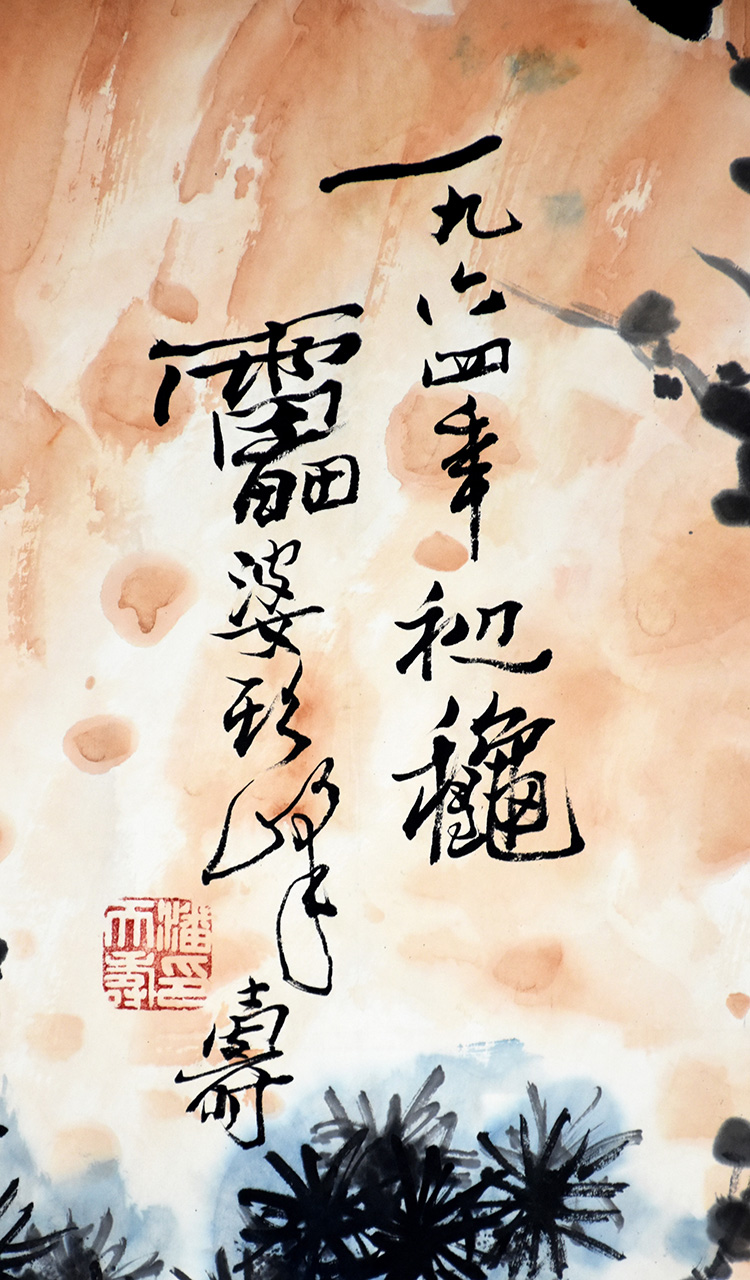 一九六四年初龝
靁婆頭峰壽
潘印
天壽